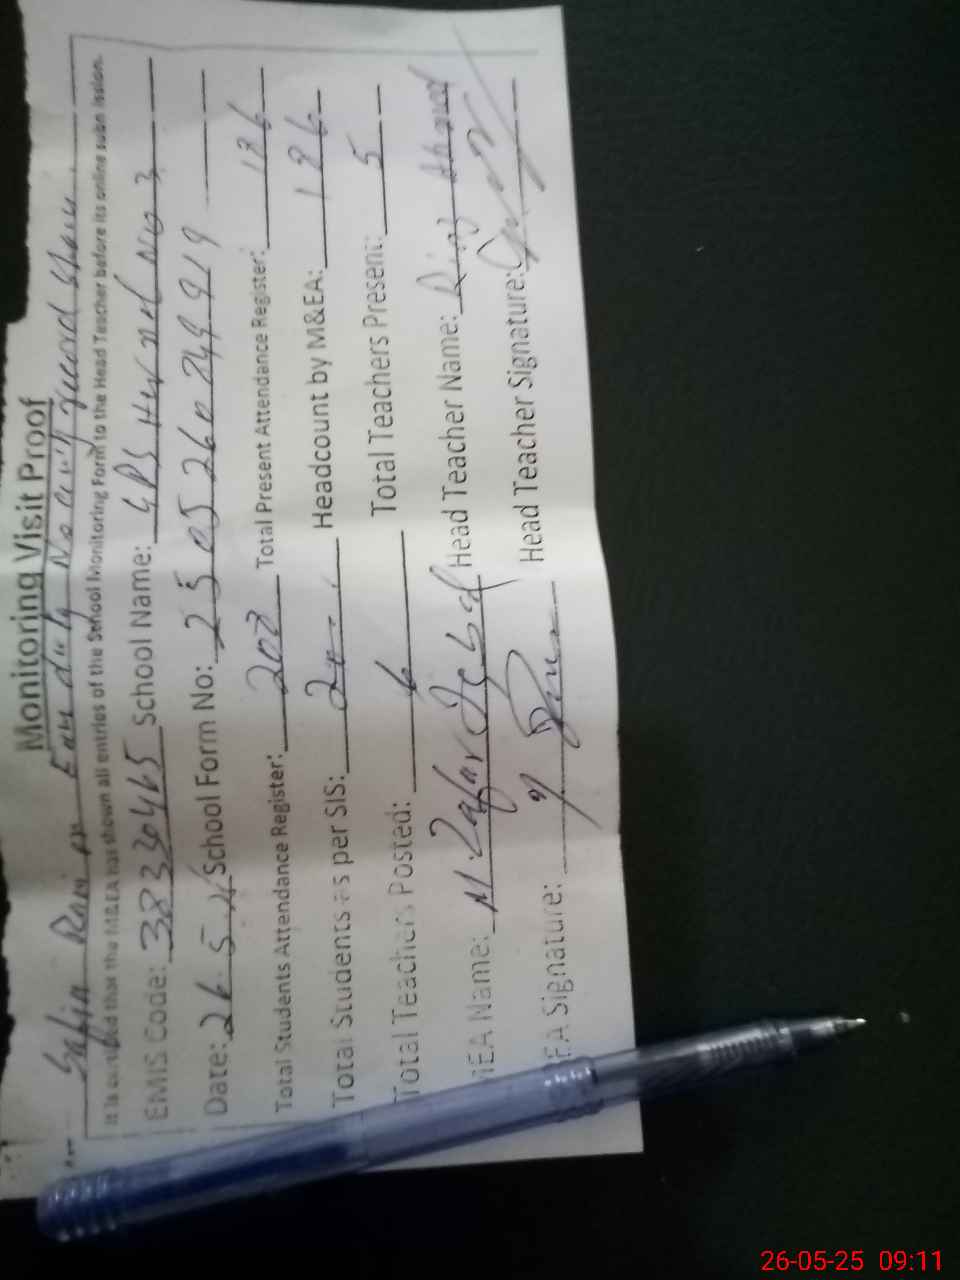 Monitoring Visit Proof
Safia Rani on Exam duty No any record shown
It is certified that the M&EA has shown all entries of the School Monitoring Form to the Head Teacher before its online submission.
EMIS Code: 38330465 School Name: GPS No 3
Date: 26.5. School Form No: 25 05 260
Total Students Attendance Register: 208 Total Present Attendance Register: 186
Total Students as per SIS: Headcount by M&EA: 186
Total Teachers Posted: 6 Total Teachers Present: 5
MEA Name: M. Zafar Iqbal Head Teacher Name: Riaz Ahmad
EA Signature: Head Teacher Signature:
26-05-25 09:11